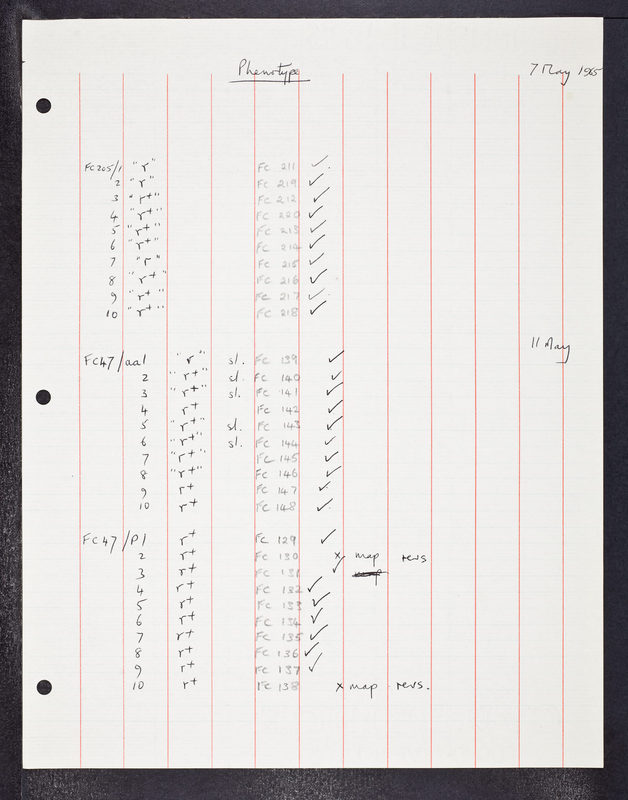 Phenotype 7 May 1965
FC205/1 "r" FC 211 ✓
2 "r" FC 219 ✓
3 "r+" FC 212 ✓
4 "r+" FC 220 ✓
5 "r+" FC 213 ✓
6 "r+" FC 214 ✓
7 "r" FC 215 ✓
8 "r+" FC 216 ✓
9 "r+" FC 217 ✓
10 "r+" FC 218 ✓
11 May
FC47/aa1 "r" sl. FC 139 ✓
2 "r+" sl. FC 140 ✓
3 "r+" sl. FC 141 ✓
4 r+ FC 142 ✓
5 "r+" sl. FC 143 ✓
6 "r+" sl. FC 144 ✓
7 "r+" FC 145 ✓
8 "r+" FC 146 ✓
9 r+ FC 147 ✓
10 r+ FC 148 ✓
FC47/P1 r+ FC 129 ✓
2 r+ FC 130 x map revs
3 r+ FC 131 ✓
4 r+ FC 132 ✓
5 r+ FC 133 ✓
6 r+ FC 134 ✓
7 r+ FC 135 ✓
8 r+ FC 136 ✓
9 r+ FC 137 ✓
10 r+ FC 138 x map revs.